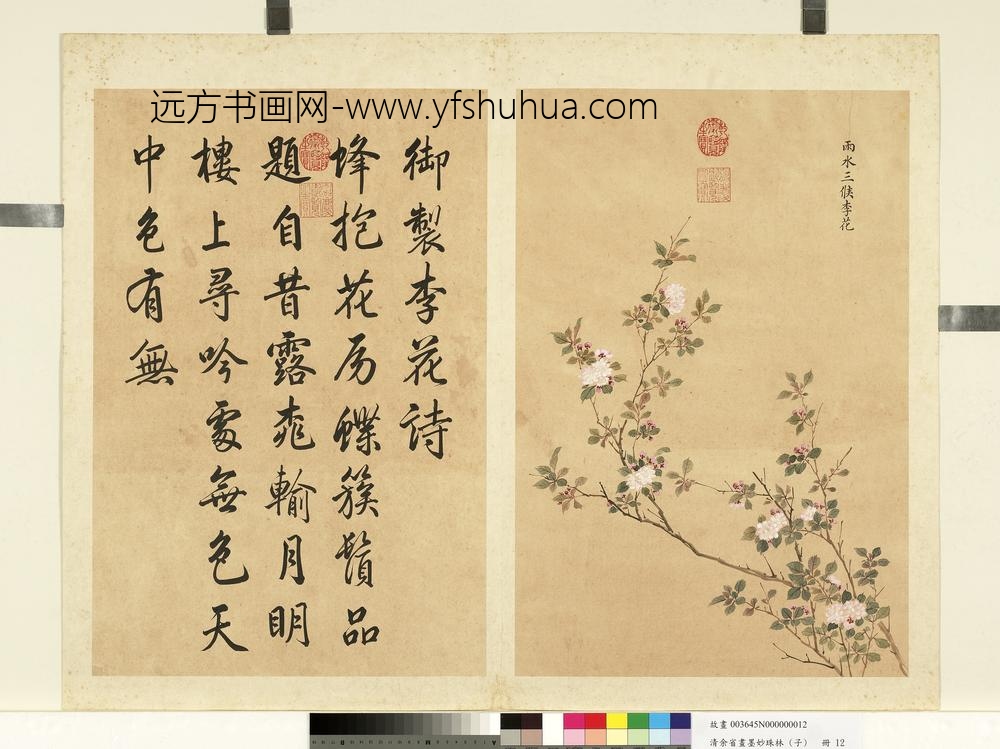 远方书画网-www.yfshuhua.com
雨水三候李花
御製李花詩
蜂抱花房蝶簇鬚品
題自昔露桃輸月明
樓上尋吟處無色天
中色有無
故畫 003645N000000012
清余省畫墨妙珠林(子) 冊 12